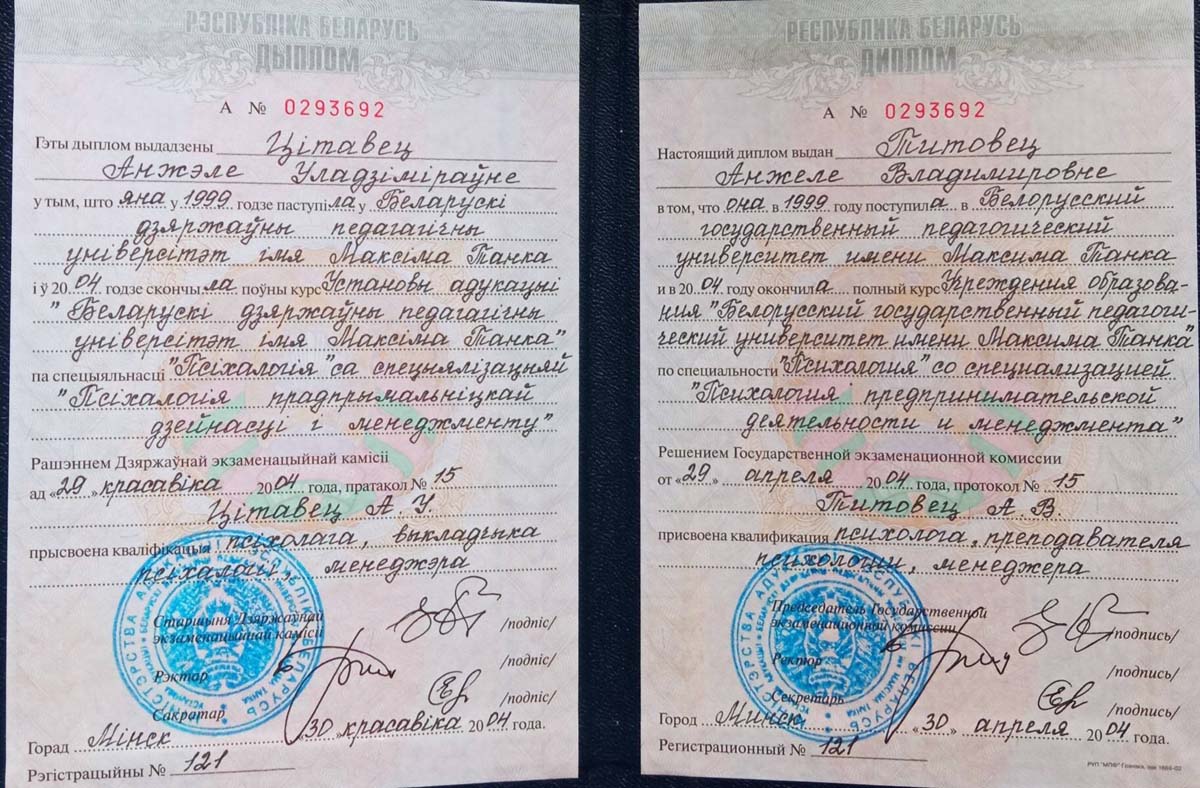 РЭСПУБЛІКА БЕЛАРУСЬ
ДЫПЛОМ
А № 0293692
Гэты дыплом выдадзены Цітавец
Анжэле Уладзіміраўне
у тым, што яна у 1999 годзе паступіла у Беларускі
дзяржаўны педагагічны
універсітэт імя Максіма Танка
і ў 2004 годзе скончыла поўны курс Установы адукацыі
"Беларускі дзяржаўны педагагічны
універсітэт імя Максіма Танка"
па спецыяльнасці "Псіхалогія" са спецыялізацыяй
"Псіхалогія прадпрымальніцкай
дзейнасці і менеджменту"
Рашэннем Дзяржаўнай экзаменацыйнай камісіі
ад «29» красавіка 2004 года, пратакол № 15
Цітавец А. У.
прысвоена кваліфікацыя псіхолага, выкладчыка
псіхалогіі, менеджэра
Старшыня Дзяржаўнай
экзаменацыйнай камісіі /подпіс/
Рэктар /подпіс/
Сакратар /подпіс/
Горад Мінск «30» красавіка 2004 года.
Рэгістрацыйны № 121
РЕСПУБЛИКА БЕЛАРУСЬ
ДИПЛОМ
А № 0293692
Настоящий диплом выдан Титовец
Анжеле Владимировне
в том, что она в 1999 году поступила в Белорусский
государственный педагогический
университет имени Максима Танка
и в 2004 году окончила полный курс Учреждения образова-
ния "Белорусский государственный педагоги-
ческий университет имени Максима Танка"
по специальности "Психология" со специализацией
"Психология предпринимательской
деятельности и менеджмента"
Решением Государственной экзаменационной комиссии
от «29» апреля 2004 года, протокол № 15
Титовец А. В.
присвоена квалификация психолога, преподавателя
психологии, менеджера
Председатель Государственной
экзаменационной комиссии /подпись/
Ректор /подпись/
Секретарь /подпись/
Город Минск «30» апреля 2004 года.
Регистрационный № 121